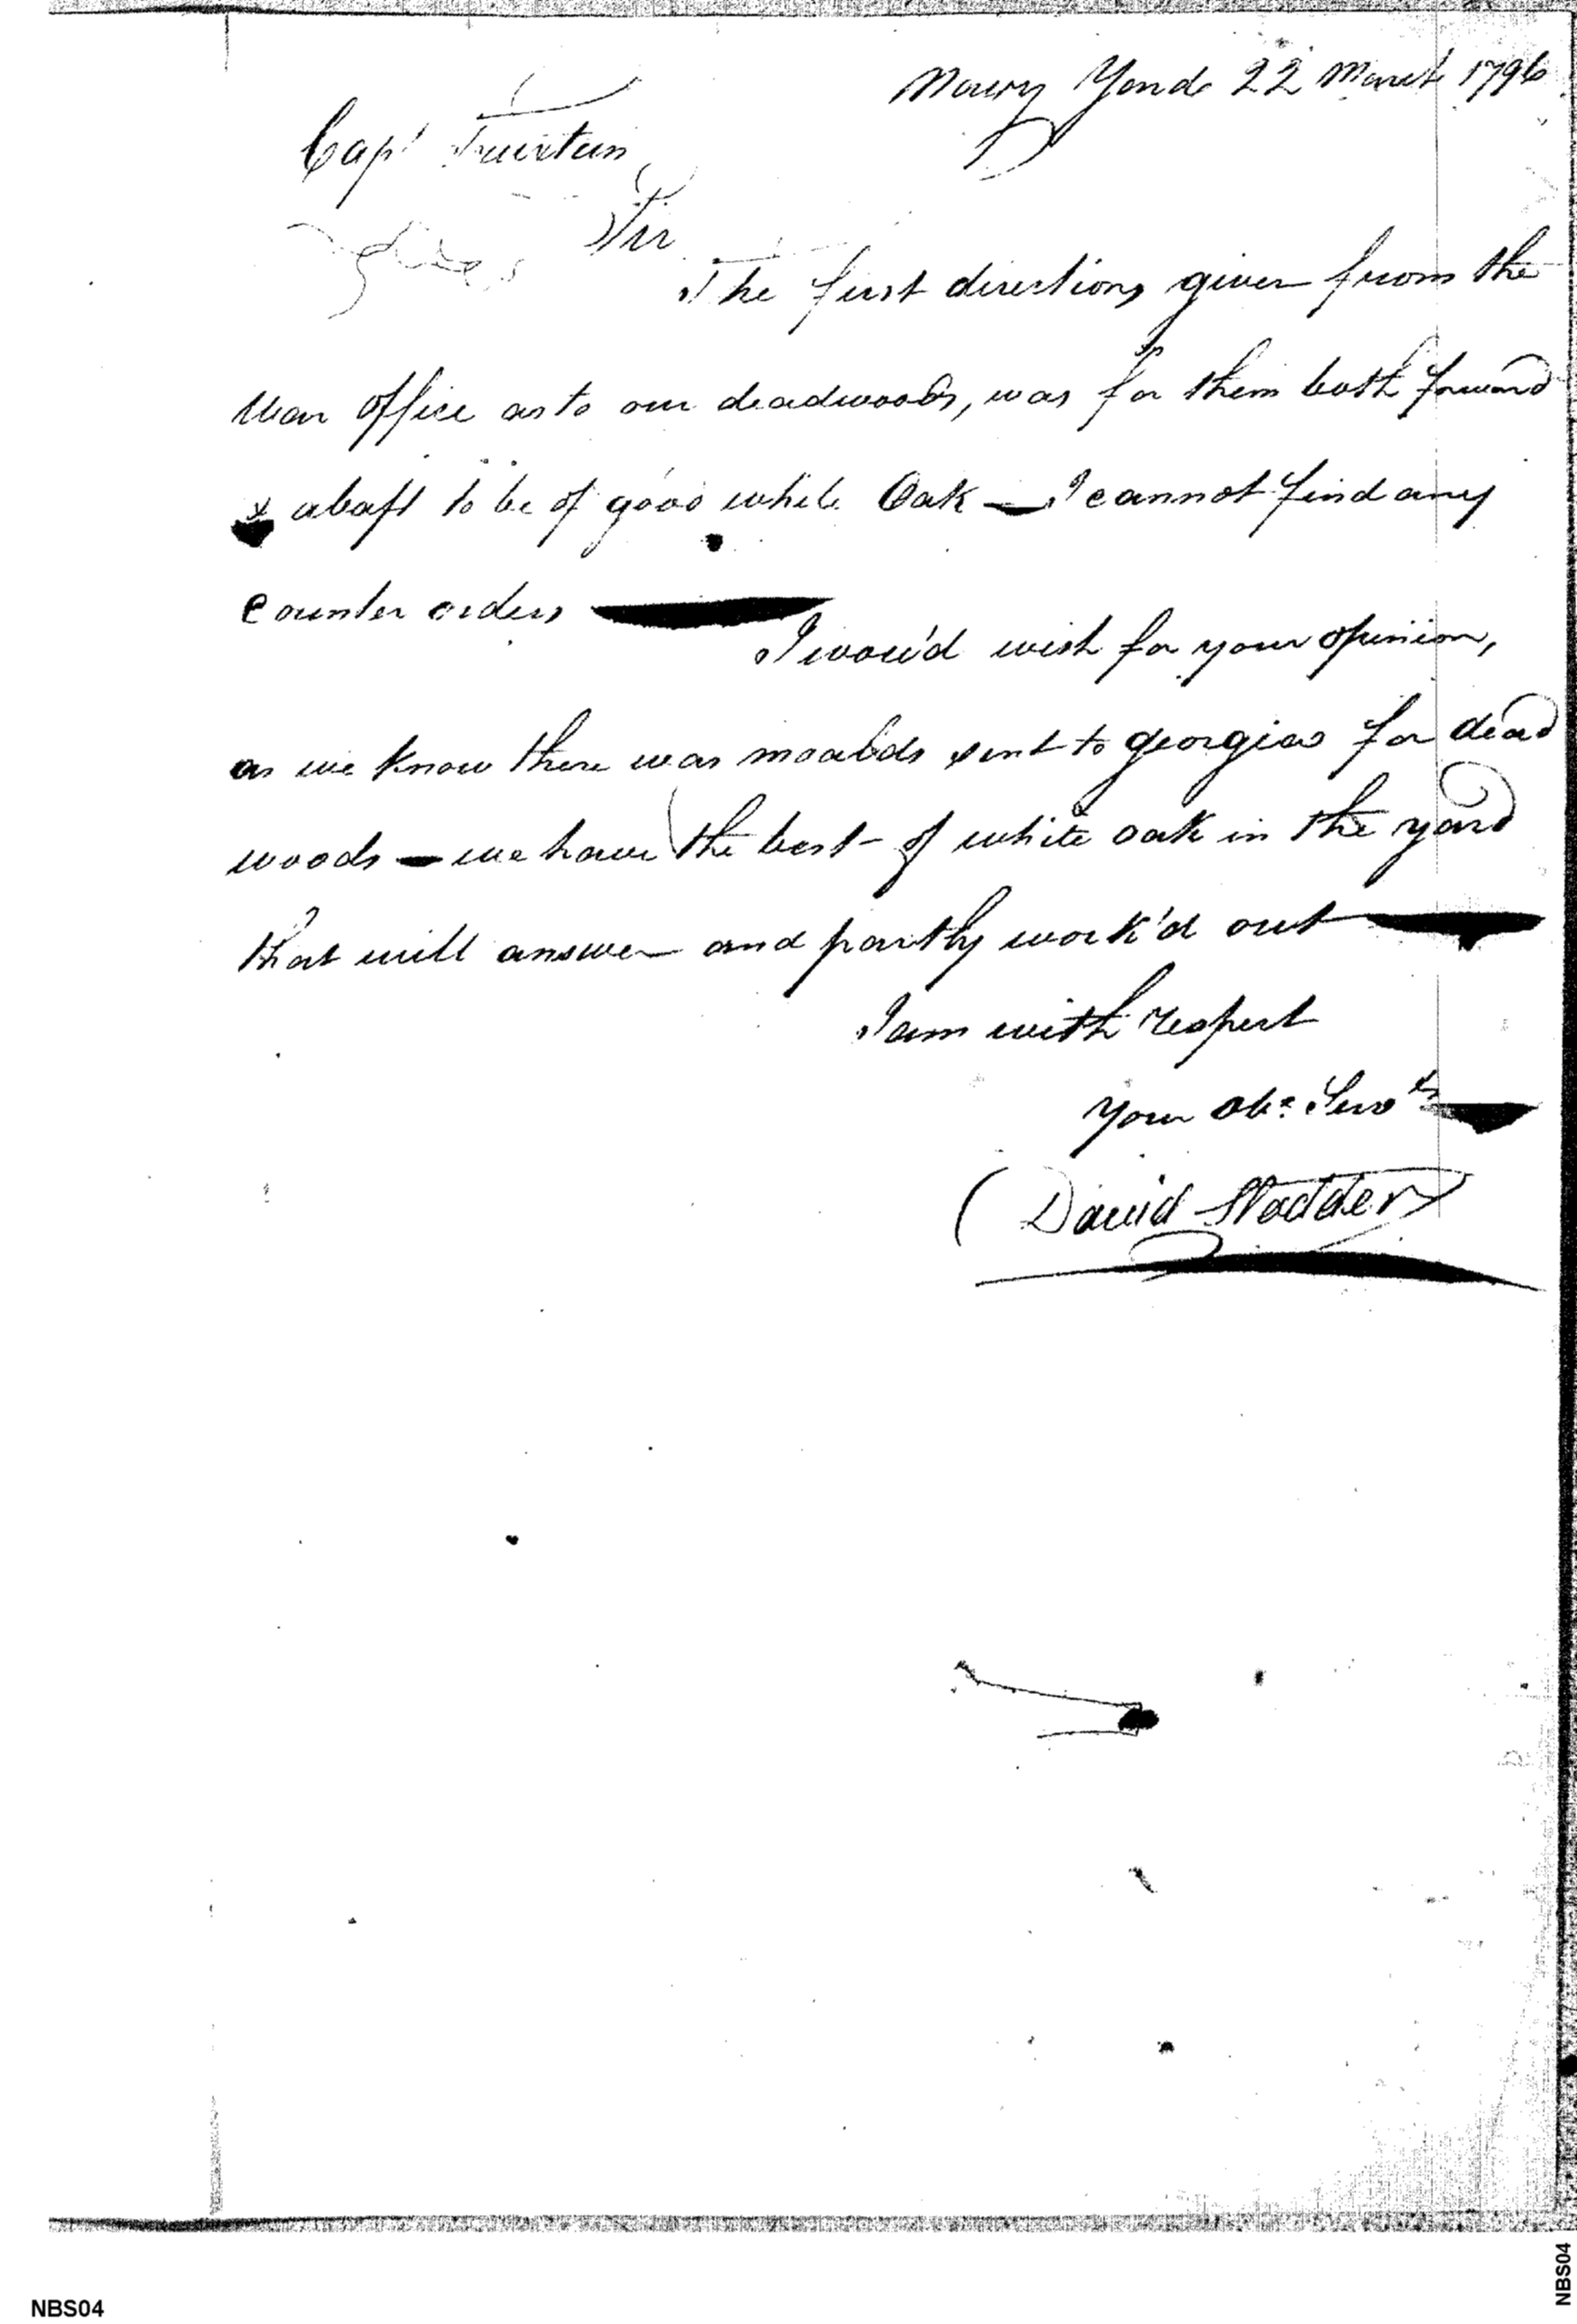 Navy Yard 22 March 1796
Capt Truxtun
Sir
The first directions given from the
War office as to our deadwoods, was for them both forward
& abaft to be of good white Oak — I cannot find any
counter orders —
I wou'd wish for your opinion,
as we know there was moalds sent to georgia for dead
woods — we have the best of white oak in the yard
that will answer and partly work'd out —
I am with respect
Your Obt Servt
(David Stodder)
NBS04
NBS04